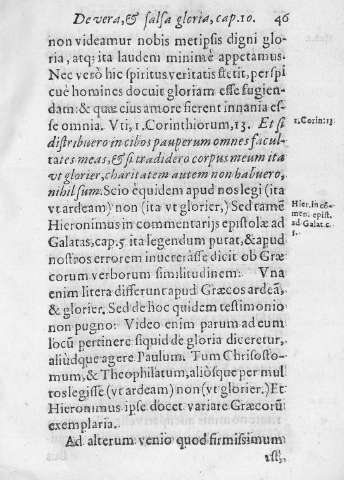 De vera, & falsa gloria, cap. 10. 46
non videamur nobis metipsis digni glo-
ria, atq; ita laudem minimè appetamus.
Nec verò hic spiritus veritatis stetit, perspi
cuè homines docuit gloriam esse fugien-
dam: & quæ eius amore fierent innania es-
se omnia. Vti, 1. Corinthiorum, 13. Et si
distribuero in cibos pauperum omnes facul-
tates meas, & si tradidero corpus meum ita
vt glorier, charitatem autem non habuero,
nihil sum. Scio équidem apud nos legi (ita
vt ardeam) non (ita vt glorier,) Sed tamē
Hieronimus in commentarijs epistolæ ad
Galatas, cap. 5 ita legendum putat, & apud
nostros errorem inueterásse dicit ob Græ
corum verborum similitudinem: Vna
enim litera differunt apud Græcos ardeā,
& glorier. Sed de hoc quidem testimonio
non pugno: Video enim parum ad eum
locū pertinere siquid de gloria diceretur,
aliùdque agere Paulum. Tum Chrisosto-
mum, & Theophilatum, aliòsque per mul
tos legisse (vt ardeam) non (vt glorier.) Et
Hieronimus ipse docet variare Græcorū
exemplaria.
Ad alterum venio quod firmissimum
est,
1. Corin: 13
Hier. in cō-
ment epist.
ad Galat. c.
5.